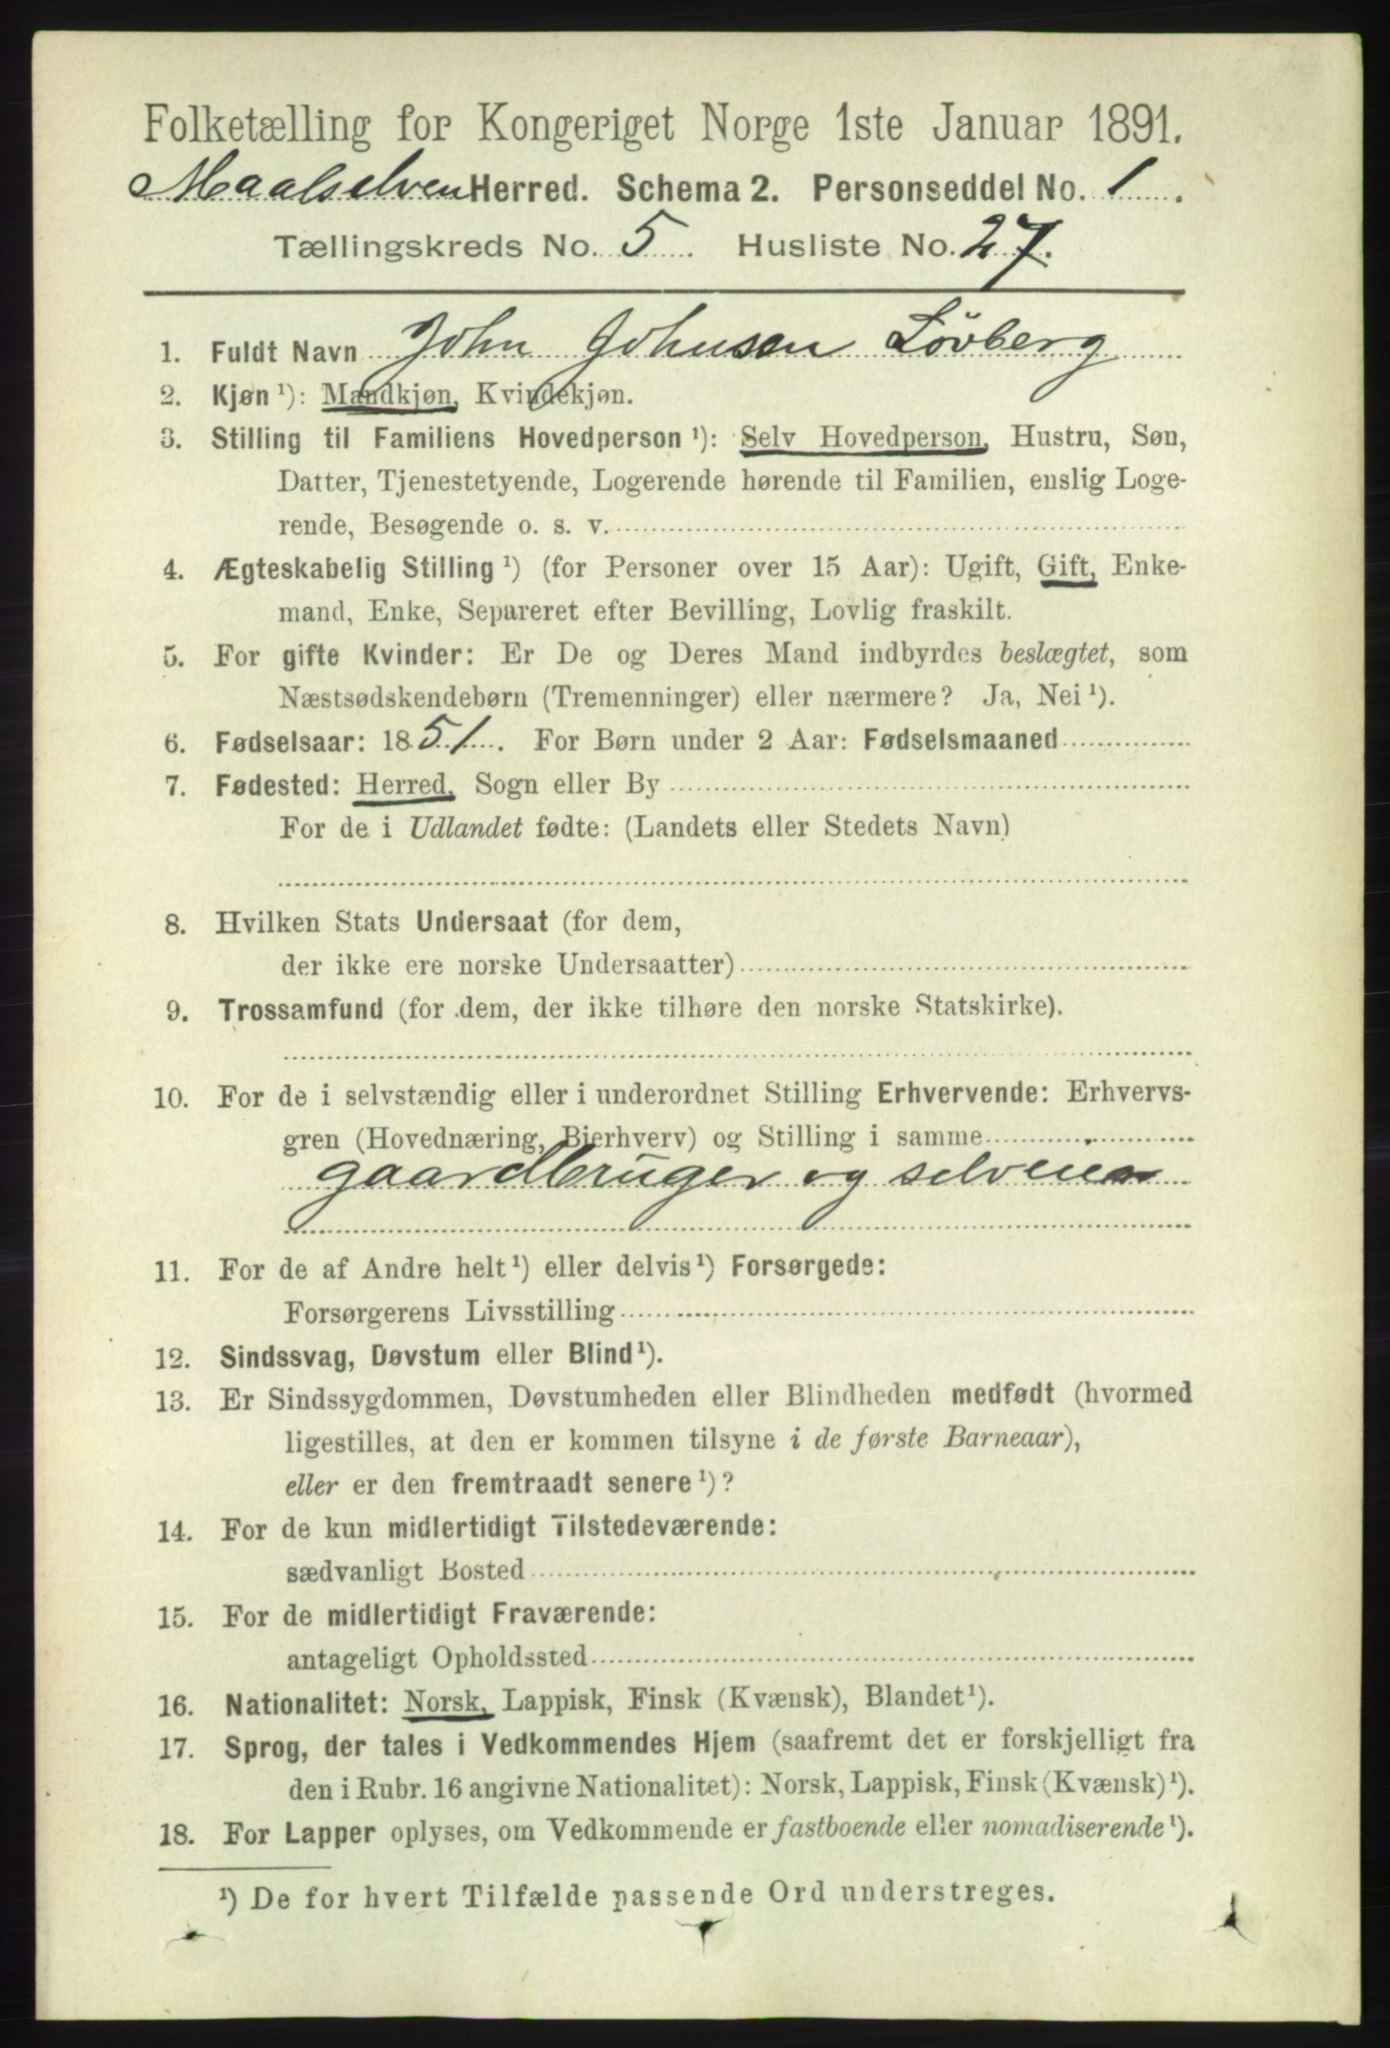 Folketælling for Kongeriget Norge 1ste Januar 1891.
Maalselven Herred. Schema 2. Personseddel No. 1.
Tællingskreds No. 5. Husliste No. 27.
1. Fuldt Navn John Johnsen Lövberg
2. Kjøn ¹): Mandkjøn, Kvindekjøn.
3. Stilling til Familiens Hovedperson ¹): Selv Hovedperson, Hustru, Søn,
Datter, Tjenestetyende, Logerende hørende til Familien, enslig Loge-
rende, Besøgende o. s. v.
4. Ægteskabelig Stilling ¹) (for Personer over 15 Aar): Ugift, Gift, Enke-
mand, Enke, Separeret efter Bevilling, Lovlig fraskilt.
5. For gifte Kvinder: Er De og Deres Mand indbyrdes beslægtet, som
Næstsødskendebørn (Tremenninger) eller nærmere? Ja, Nei ¹).
6. Fødselsaar: 1851. For Børn under 2 Aar: Fødselsmaaned
7. Fødested: Herred, Sogn eller By
For de i Udlandet fødte: (Landets eller Stedets Navn)
8. Hvilken Stats Undersaat (for dem,
der ikke ere norske Undersaatter)
9. Trossamfund (for dem, der ikke tilhøre den norske Statskirke).
10. For de i selvstændig eller i underordnet Stilling Erhvervende: Erhvervs-
gren (Hovednæring, Bierhverv) og Stilling i samme
gaardbruger og selveier
11. For de af Andre helt ¹) eller delvis ¹) Forsørgede:
Forsørgerens Livsstilling
12. Sindssvag, Døvstum eller Blind ¹).
13. Er Sindssygdommen, Døvstumheden eller Blindheden medfødt (hvormed
ligestilles, at den er kommen tilsyne i de første Barneaar),
eller er den fremtraadt senere ¹)?
14. For de kun midlertidigt Tilstedeværende:
sædvanligt Bosted
15. For de midlertidigt Fraværende:
antageligt Opholdssted
16. Nationalitet: Norsk, Lappisk, Finsk (Kvænsk), Blandet ¹).
17. Sprog, der tales i Vedkommendes Hjem (saafremt det er forskjelligt fra
den i Rubr. 16 angivne Nationalitet): Norsk, Lappisk, Finsk (Kvænsk) ¹).
18. For Lapper oplyses, om Vedkommende er fastboende eller nomadiserende ¹).
¹) De for hvert Tilfælde passende Ord understreges.